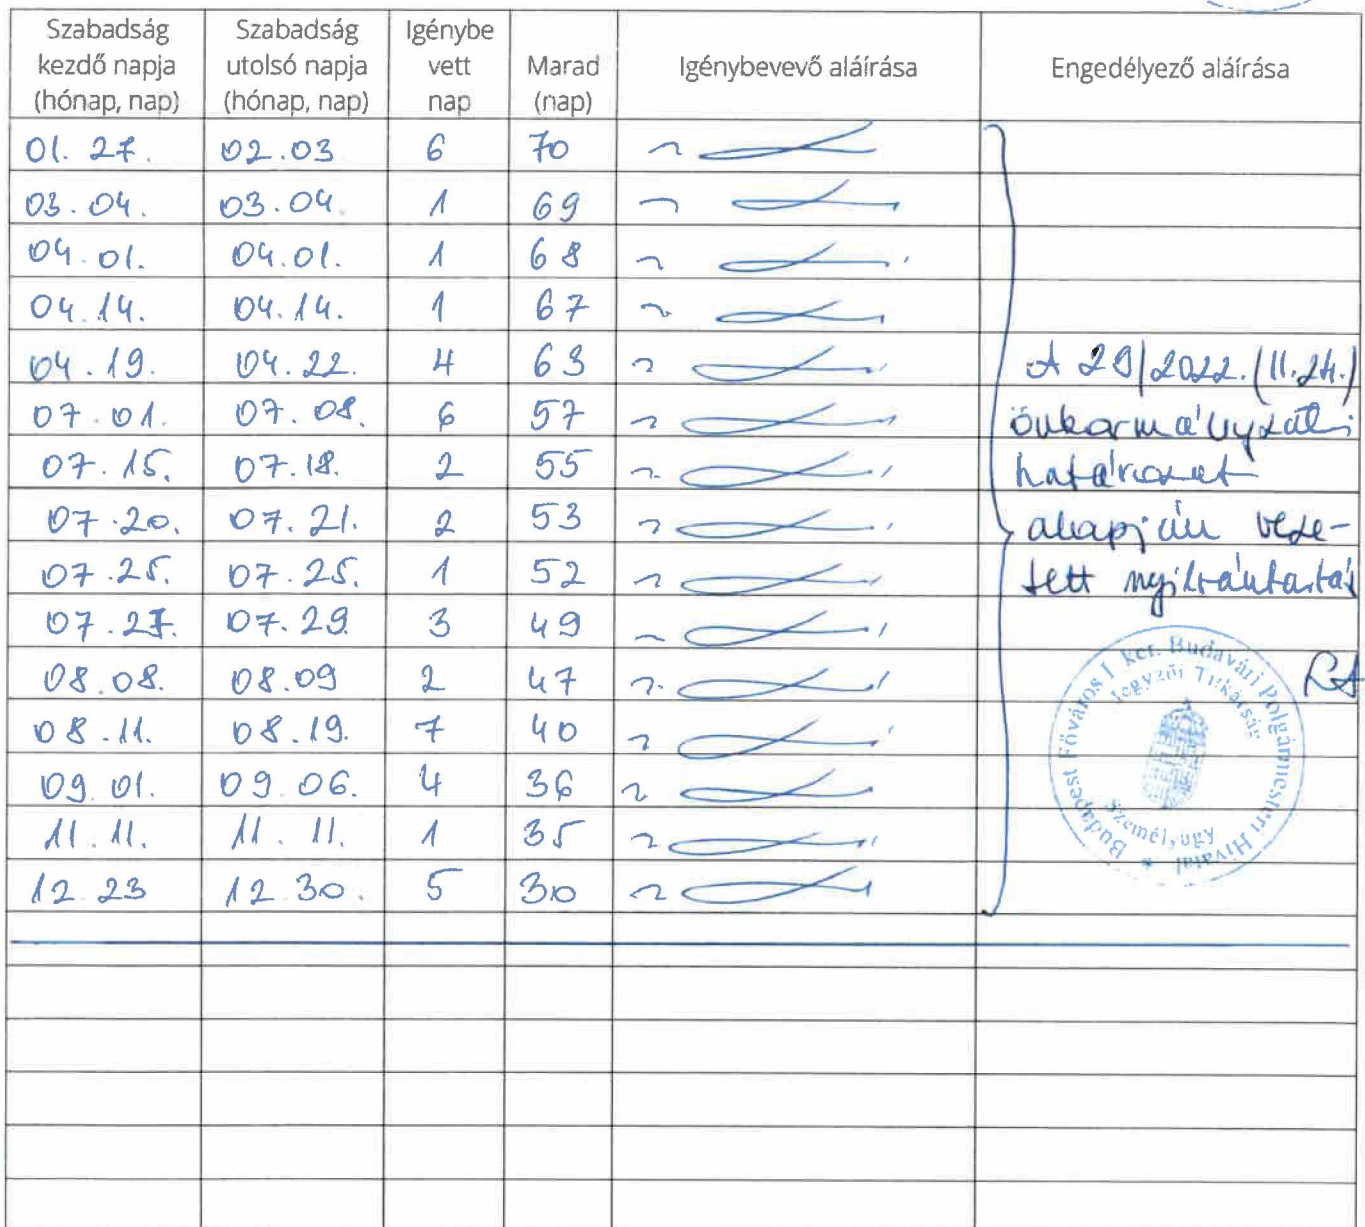 Szabadság kezdő napja (hónap, nap) Szabadság utolsó napja (hónap, nap) Igénybe vett nap Marad (nap) Igénybevevő aláírása Engedélyező aláírása
01. 27. 02.03 6 70
03.04. 03.04. 1 69
04.01. 04.01. 1 68
04.14. 04.14. 1 67
04.19. 04.22. 4 63 A 29/2022. (11.24.)
07.01. 07.08. 6 57 önkormányzati
07.15. 07.18. 2 55 határozat
07.20. 07.21. 2 53 alapján veze-
07.25. 07.25. 1 52 tett nyilvántartás
07.27. 07.29. 3 49
08.08. 08.09 2 47
08.11. 08.19. 7 40
09.01. 09.06. 4 36
11.11. 11.11. 1 35
12.23 12.30. 5 30
Budapest Főváros I. ker. Budavári Polgármesteri Hivatal
Jegyzői Titkárság
Személyügy